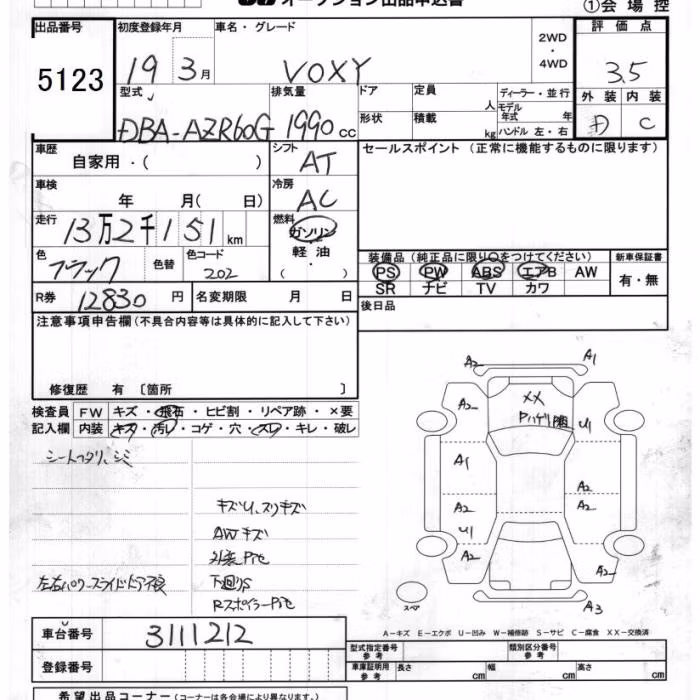 オークション出品申込書
①会場控
出品番号 5123
初度登録年月 19 3月
車名・グレード VOXY
2WD・4WD
評価点 3.5
外装 D 内装 C
型式 DBA-AZR60G
排気量 1990cc
ドア
定員 人
ディーラー・並行
形状
積載 kg
モデル年式 年
ハンドル 左・右
車歴 自家用・( )
シフト AT
セールスポイント(正常に機能するものに限ります)
車検 年 月( 日)
冷房 AC
走行 13万2千151km
燃料 ガソリン・軽油・( )
色 ブラック 色替
色コード 202
装備品(純正品に限り○をつけてください)
新車保証書
PS PW ABS エアB AW
SR ナビ TV カワ
有・無
R券 12830円
名変期限 月 日
後日品
注意事項申告欄(不具合内容等は具体的に記入して下さい)
修復歴 有〔箇所 〕
検査員記入欄
FW キズ・飛石・ヒビ割・リペア跡・×要
内装 キズ・汚レ・コゲ・穴・スレ・キレ・破レ
シートヘタリ、シミ
キズU、スリキズ
AWキズ
下廻りS
A2 A1
A2 XX U1
A1 A2
A2 A2
U1
A2 A2
スペア
A3
A-キズ E-エクボ U-凹み W-補修跡 S-サビ C-腐食 XX-交換済
車台番号 3111212
登録番号
型式指定番号 参考
類別区分番号 参考
車庫証明用 参考 長さ cm 幅 cm 高さ cm
希望出品コーナー(コーナーは各会場により異なります。)